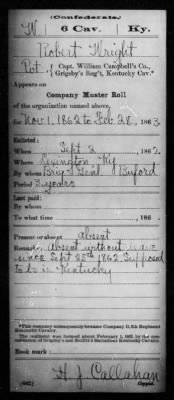 (Confederate)
W 6 Cav. Ky.
Robert Wright
Pvt., { Capt. William Campbell's Co.,
Grigsby's Reg't, Kentucky Cav.*
Appears on
Company Muster Roll
of the organization named above,
for Nov 1, 1862 to Feb 28, 1863
Enlisted:
When Sept 2, 1862
Where Lexington Ky
By whom Brig Genl Buford
Period 3 years
Last paid:
By whom
To what time , 186
Present or absent absent
Remarks: absent without leave
since Sept 25th 1862 Supposed
to be in Kentucky
*This company subsequently became Company D, 6th Regiment
Kentucky Cavalry.
Book mark:
H J Callahan
(642) Copyist.